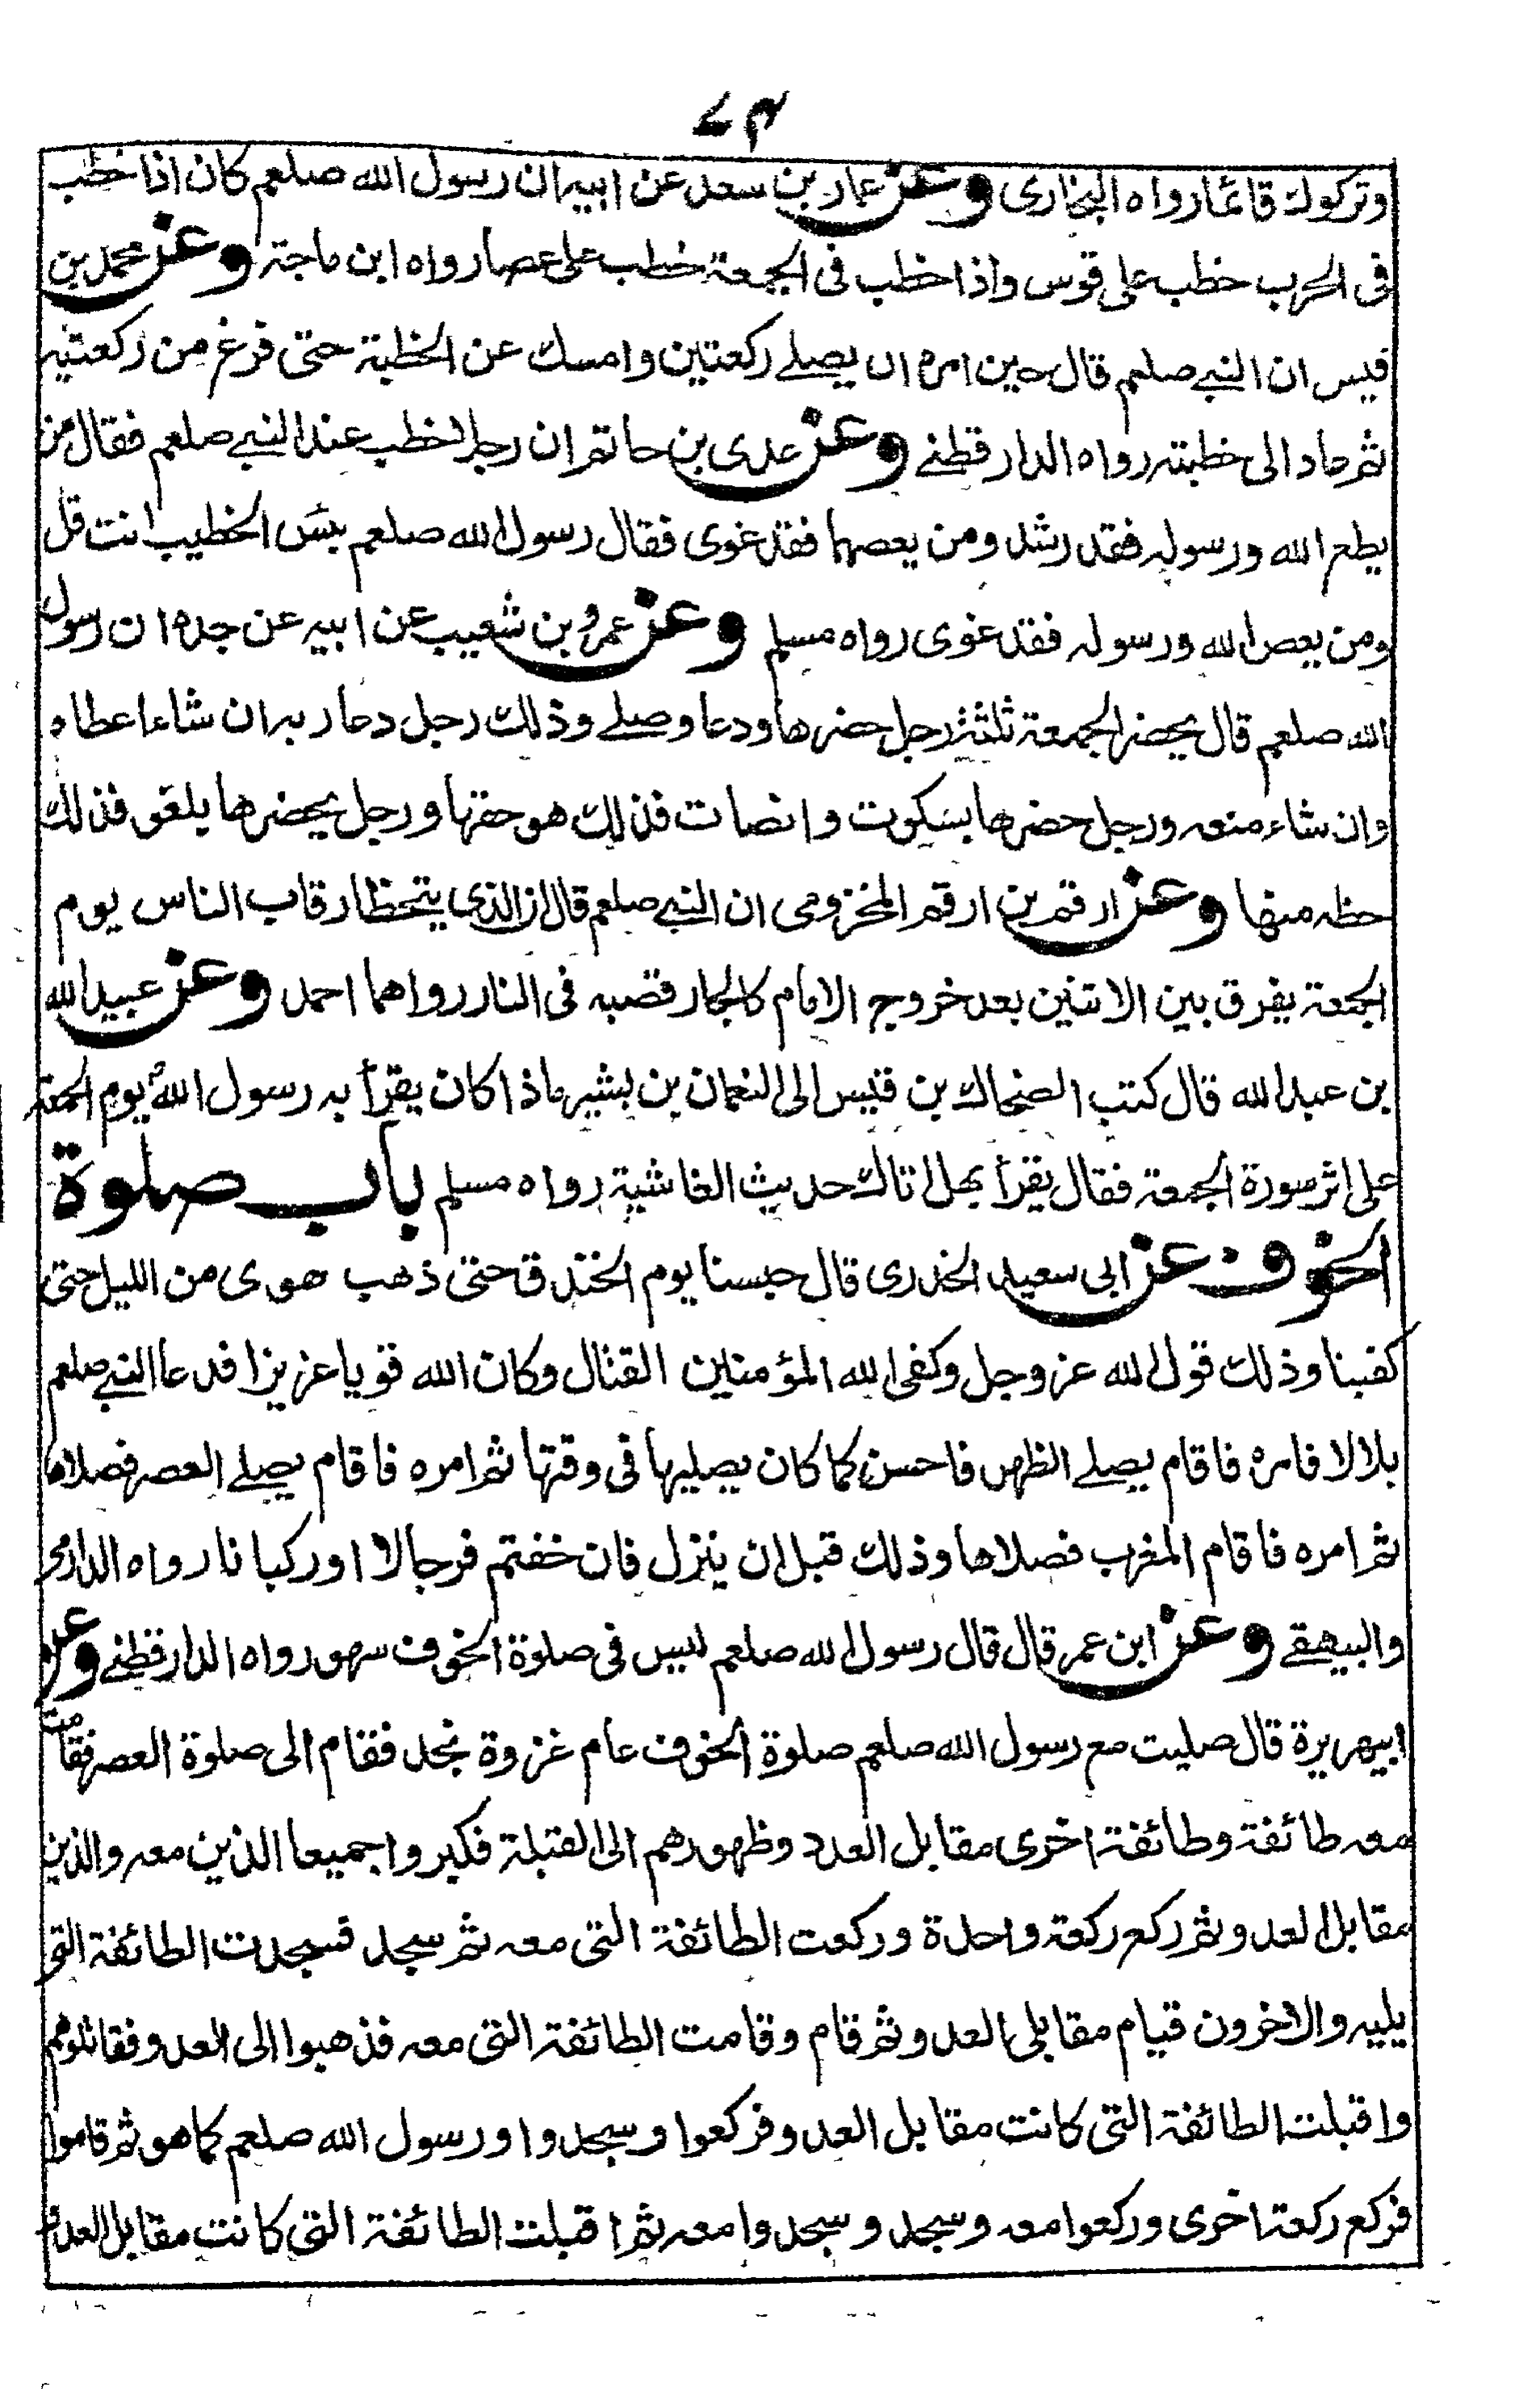 ٧٣
وتركوك قائما رواه البخاري وعن عمار بن سعد عن ابيه ان رسول الله صلعم كان اذا خطب
فى الحرب خطب على قوس واذا خطب فى الجمعة خطب على عصا رواه ابن ماجة وعن محمد بن
قيس ان النبي صلعم قال حين امره ان يصلے ركعتين وامسك عن الخطبة حتى فرغ من ركعتيه
ثم عاد الى خطبته رواه الدارقطنے وعن عدى بن حاتم ان رجلا خطب عند النبے صلعم فقال من
يطع الله ورسوله فقد رشد ومن يعصهما فقد غوى فقال رسول الله صلعم بئس الخطيب انت قل
ومن يعص الله ورسوله فقد غوى رواه مسلم وعن عمرو بن شعيب عن ابيه عن جده ان رسول
الله صلعم قال يحضر الجمعة ثلثة رجل حضرها ودعا وصلے وذلك رجل دعا ربه ان شاء اعطاه
وان شاء منعه ورجل حضرها بسكوت وانصات فذلك هو حقها ورجل يحضرها يلغو فذلك
حظه منها وعن ارقم بن ارقم المخزومى ان النبے صلعم قال ان الذى يتخطا رقاب الناس يوم
الجمعة يفرق بين الاثنين بعد خروج الامام كالجار قصبه فى النار رواهما احمد وعن عبيد الله
بن عبد الله قال كتب الضحاك بن قيس الى النعمان بن بشير ماذا كان يقرأ به رسول الله يوم الجمعة
على اثر سورة الجمعة فقال يقرأ بهل اتاك حديث الغاشية رواه مسلم باب صلوة
الخوف عن ابى سعيد الخدرى قال حبسنا يوم الخندق حتى ذهب هوى من الليل حتى
كفينا وذلك قول الله عز وجل وكفى الله المؤمنين القتال وكان الله قويا عزيزا فدعا النبے صلعم
بلالا فامره فاقام يصلے الظهر فاحسن كما كان يصليها فى وقتها ثم امره فاقام يصلے العصر فصلاها
ثم امره فاقام المغرب فصلاها وذلك قبل ان ينزل فان خفتم فرجالا او ركبانا رواه الدارمى
والبيهقے وعن ابن عمر قال قال رسول الله صلعم ليس فى صلوة الخوف سهو رواه الدارقطنے وعن
ابيهريرة قال صليت مع رسول الله صلعم صلوة الخوف عام غزوة نجد فقام الى صلوة العصر فقامت
معه طائفة وطائفة اخرى مقابل العدو وظهورهم الى القبلة فكبروا جميعا الذين معه والذين
مقابل العدو ثم ركع ركعة واحدة وركعت الطائفة التى معه ثم سجد فسجدت الطائفة التى
يليه والاخرون قيام مقابلى العدو ثم قام وقامت الطائفة التى معه فذهبوا الى العدو فقاتلوهم
واقبلت الطائفة التى كانت مقابل العدو فركعوا وسجدوا ورسول الله صلعم كما هو ثم قاموا
فركع ركعة اخرى وركعوا معه وسجد وسجدوا معه ثم اقبلت الطائفة التى كانت مقابل العدو